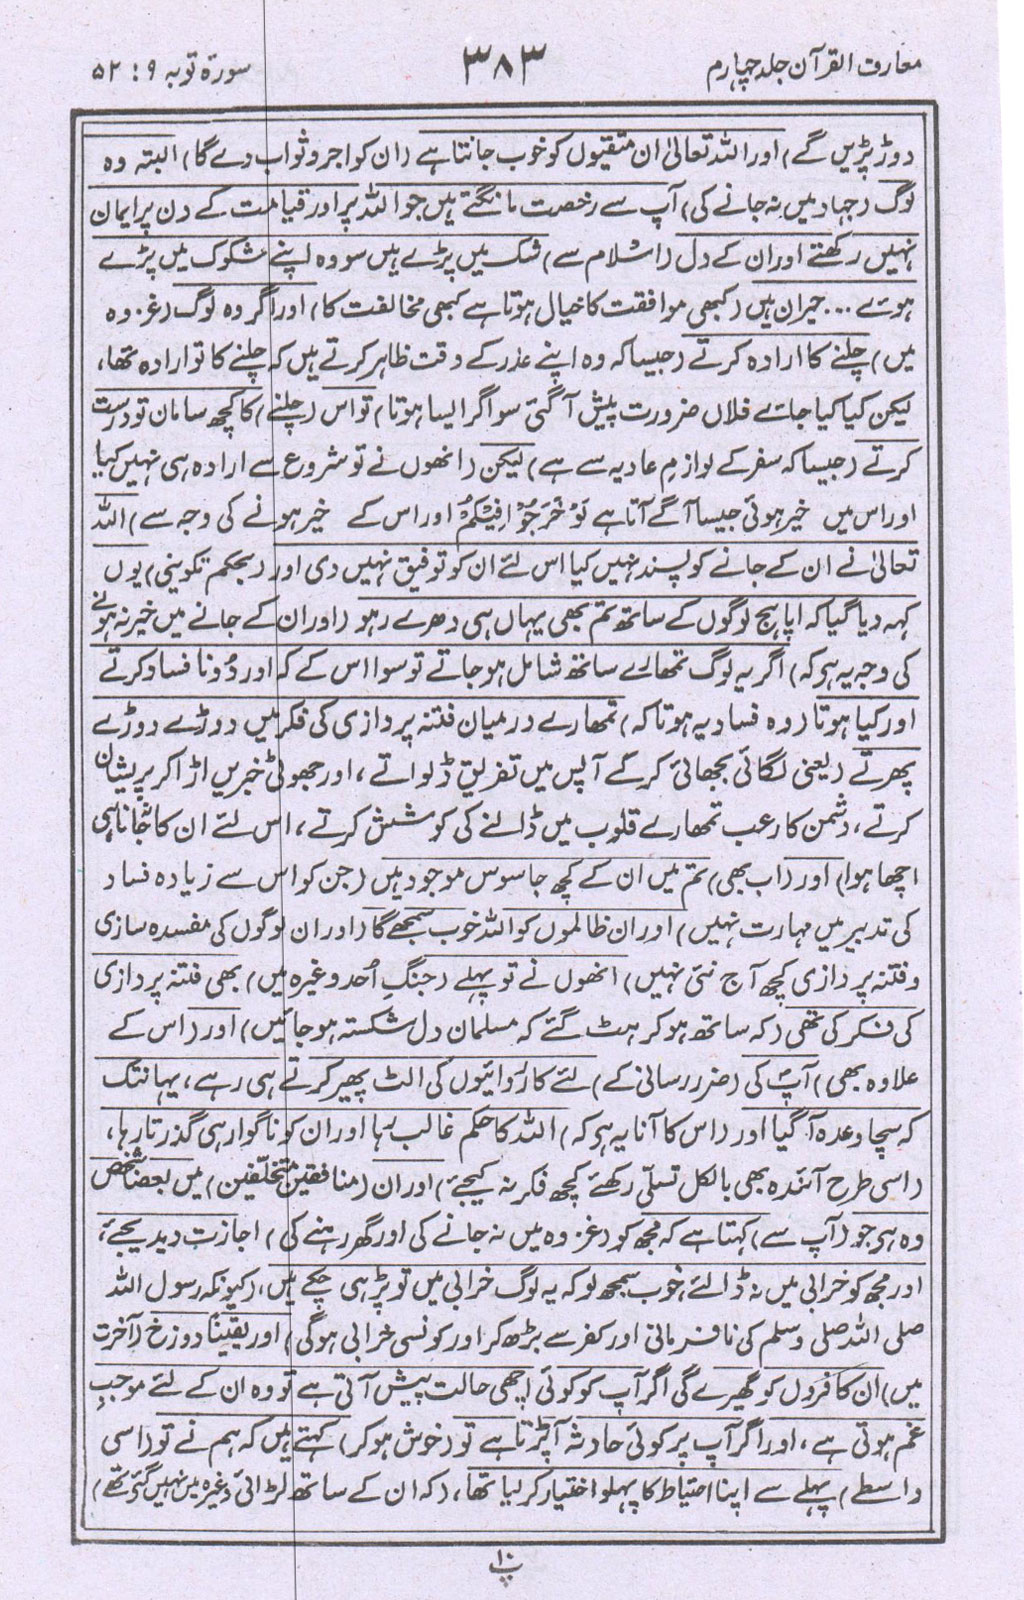 معارف القرآن جلد چہارم ۳۸۳ سورۃ توبہ ۹ : ۵۲
دوڑ پڑیں گے) اور اللہ تعالیٰ ان متقیوں کو خوب جانتا ہے (ان کو اجر و ثواب دے گا) البتہ وہ
لوگ (جہاد میں نہ جانے کی) آپ سے رخصت مانگتے ہیں جو اللہ پر اور قیامت کے دن پر ایمان
نہیں رکھتے اور ان کے دل (اسلام سے) شک میں پڑے ہیں سو وہ اپنے شکوک میں پڑے
ہوئے ... حیران ہیں (کبھی موافقت کا خیال ہوتا ہے کبھی مخالفت کا) اور اگر وہ لوگ (غزوہ
میں) چلنے کا ارادہ کرتے (جیسا کہ وہ اپنے عذر کے وقت ظاہر کرتے ہیں کہ چلنے کا تو ارادہ تھا،
لیکن کیا کیا جائے فلاں ضرورت پیش آگئی سو اگر ایسا ہوتا) تو اس (چلنے) کا کچھ سامان تو درست
کرتے (جیسا کہ سفر کے لوازمِ عادیہ سے ہے) لیکن (انھوں نے تو شروع سے ارادہ ہی نہیں کیا
اور اس میں خیر ہوئی جیسا آگے آتا ہے لَوْ خَرَجُوْا فِيْكُمْ اور اس کے خیر ہونے کی وجہ سے) اللہ
تعالیٰ نے ان کے جانے کو پسند نہیں کیا اس لئے ان کو توفیق نہیں دی اور (بحکم تکوینی) یوں
کہہ دیا گیا کہ اپاہج لوگوں کے ساتھ تم بھی یہاں ہی دھرے رہو (اور ان کے جانے میں خیر نہ ہونے
کی وجہ یہ ہی کہ) اگر یہ لوگ تمھارے ساتھ شامل ہو جاتے تو سوا اس کے کہ اور دُونا فساد کرتے
اور کیا ہوتا (وہ فساد یہ ہوتا کہ) تمھارے درمیان فتنہ پردازی کی فکر میں دوڑے دوڑے
پھرتے (یعنی لگائی بجھائی کر کے آپس میں تفریق ڈلواتے، اور جھوٹی خبریں اڑا کر پریشان
کرتے، دشمن کا رعب تمھارے قلوب میں ڈالنے کی کوشش کرتے، اس لئے ان کا نہ جانا ہی
اچھا ہوا) اور (اب بھی) تم میں ان کے کچھ جاسوس موجود ہیں (جن کو اس سے زیادہ فساد
کی تدبیر میں مہارت نہیں) اور ان ظالموں کو اللہ خوب سمجھے گا (اور ان لوگوں کی مفسدہ سازی
و فتنہ پردازی کچھ آج نئی نہیں) انھوں نے تو پہلے (جنگِ اُحد وغیرہ میں) بھی فتنہ پردازی
کی فکر کی تھی (کہ ساتھ ہو کر ہٹ گئے کہ مسلمان دل شکستہ ہو جائیں) اور (اس کے
علاوہ بھی) آپؐ کی (ضرر رسانی کے) لئے کارروائیوں کی الٹ پھیر کرتے ہی رہے، یہانتک
کہ سچا وعدہ آگیا اور (اس کا آنا یہ ہی کہ) اللہ کا حکم غالب رہا اور ان کو ناگوار ہی گذرتا رہا،
(اسی طرح آئندہ بھی بالکل تسلّی رکھئے کچھ فکر نہ کیجئے) اور ان (منافقین متخلّفین) میں بعضا شخص
وہ ہی جو (آپ سے) کہتا ہے کہ مجھ کو (غزوہ میں نہ جانے کی اور گھر رہنے کی) اجازت دیدیجئے،
اور مجھ کو خرابی میں نہ ڈالئے، خوب سمجھ لو کہ یہ لوگ خرابی میں تو پڑ ہی چکے ہیں، (کیونکہ رسول اللہ
صلی اللہ صلی وسلم کی نافرمانی اور کفر سے بڑھ کر اور کونسی خرابی ہوگی) اور یقیناً دوزخ (آخرت
میں) ان کافروں کو گھیرے گی اگر آپ کو کوئی اچھی حالت پیش آتی ہے تو وہ ان کے لئے موجبِ
غم ہوتی ہے، اور اگر آپ پر کوئی حادثہ آپڑتا ہے تو (خوش ہو کر) کہتے ہیں کہ ہم نے تو (اسی
واسطے) پہلے سے اپنا احتیاط کا پہلو اختیار کر لیا تھا، (کہ ان کے ساتھ لڑائی وغیرہ میں نہیں گئے تھے)
پ۱۰